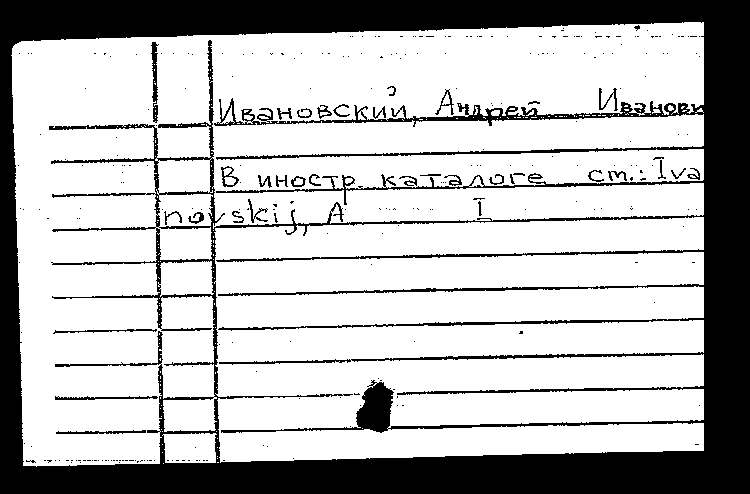 Ивановский, Андрей Иванови
В иностр. каталоге см.: Iva
novskij, A I